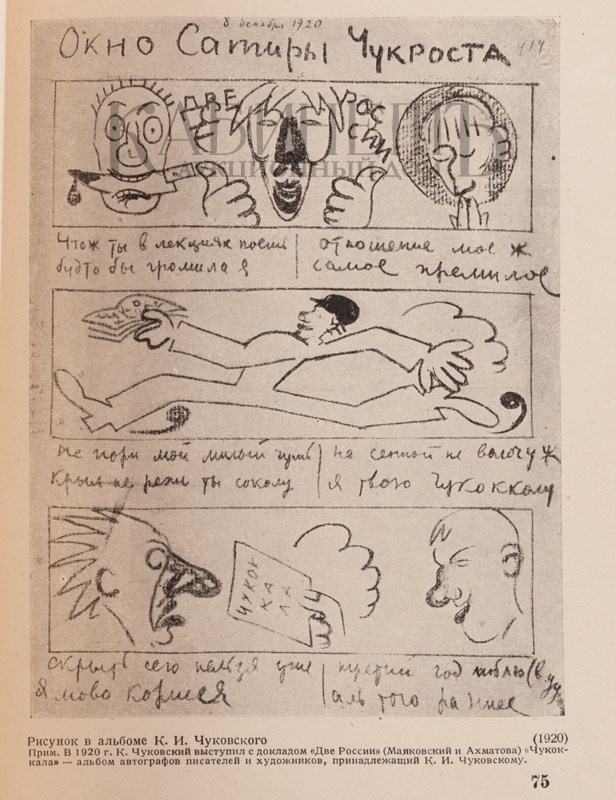 8 декабря 1920
Окно Сатиры Чукроста 414
ДВЕ РОССИИ
КАБИНЕТЪ
АУКЦИОННЫЙ ДОМ
Чтож ты в лекциях поешь
будто бы громила я
отношение мое ж
самое премилое
Чукок
Не пори мой милый чушь
Крыл не режь ты соколу
на сенной не волочу ж
я твою Чукоккалу
ЧУКОК
КА
ЛА
Скрыть сего нельзя уже
я мово Корнея
третий год люблю (в уу
аль того раннее
Рисунок в альбоме К. И. Чуковского (1920)
Прим. В 1920 г. К. Чуковский выступил с докладом «Две России» (Маяковский и Ахматова) «Чукок-
кала» — альбом автографов писателей и художников, принадлежащий К. И. Чуковскому.
75